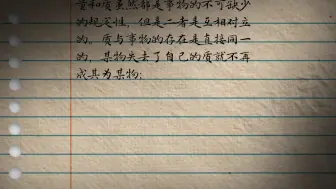 量和质虽然都是事物的不可缺少
的规定性，但是二者是互相对立
的。质与事物的存在是直接同一
的，某物失去了自己的质就不再
成其为某物；